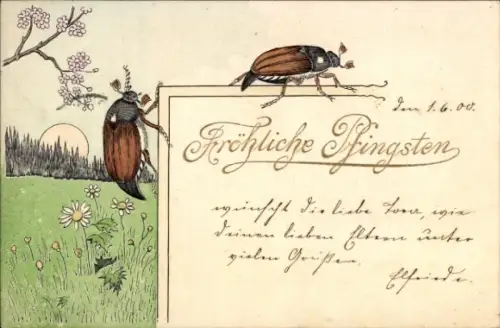 den 1.6.00.
Fröhliche Pfingsten
wünscht die liebe Tora, wie
deinen lieben Eltern unter
vielen Grüßen.
Elfriede.